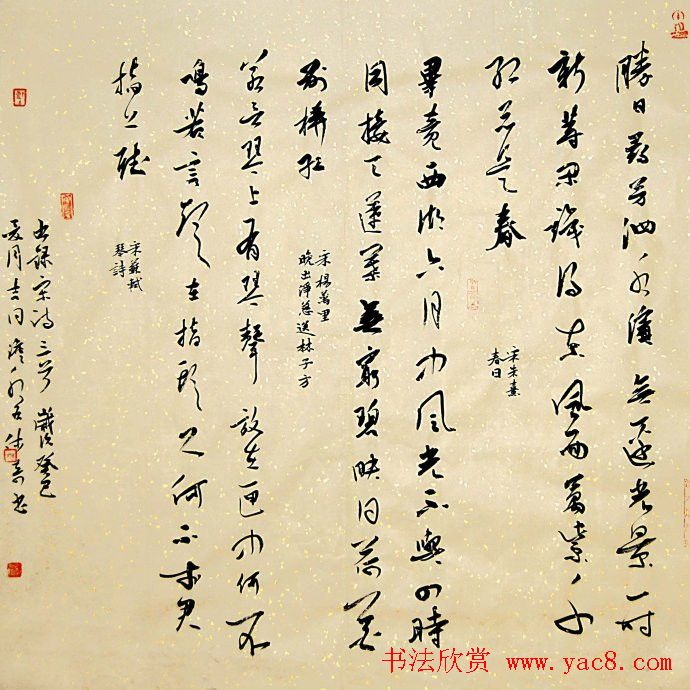 勝日尋芳泗水濱無邊光景一时
新等閑識得東風面萬紫千
红總是春
宋朱熹
春日
畢竟西湖六月中風光不與四時
同接天蓮葉無窮碧映日荷花
别樣红
宋楊萬里
晚出淨慈送林子方
若言琴上有琴聲放在匣中何不
鳴若言聲在指頭上何不於君
指上聽
宋蘇軾
琴詩
右録宋詩三首歲次癸巳
夏月吉日
书法欣赏 www.yac8.com